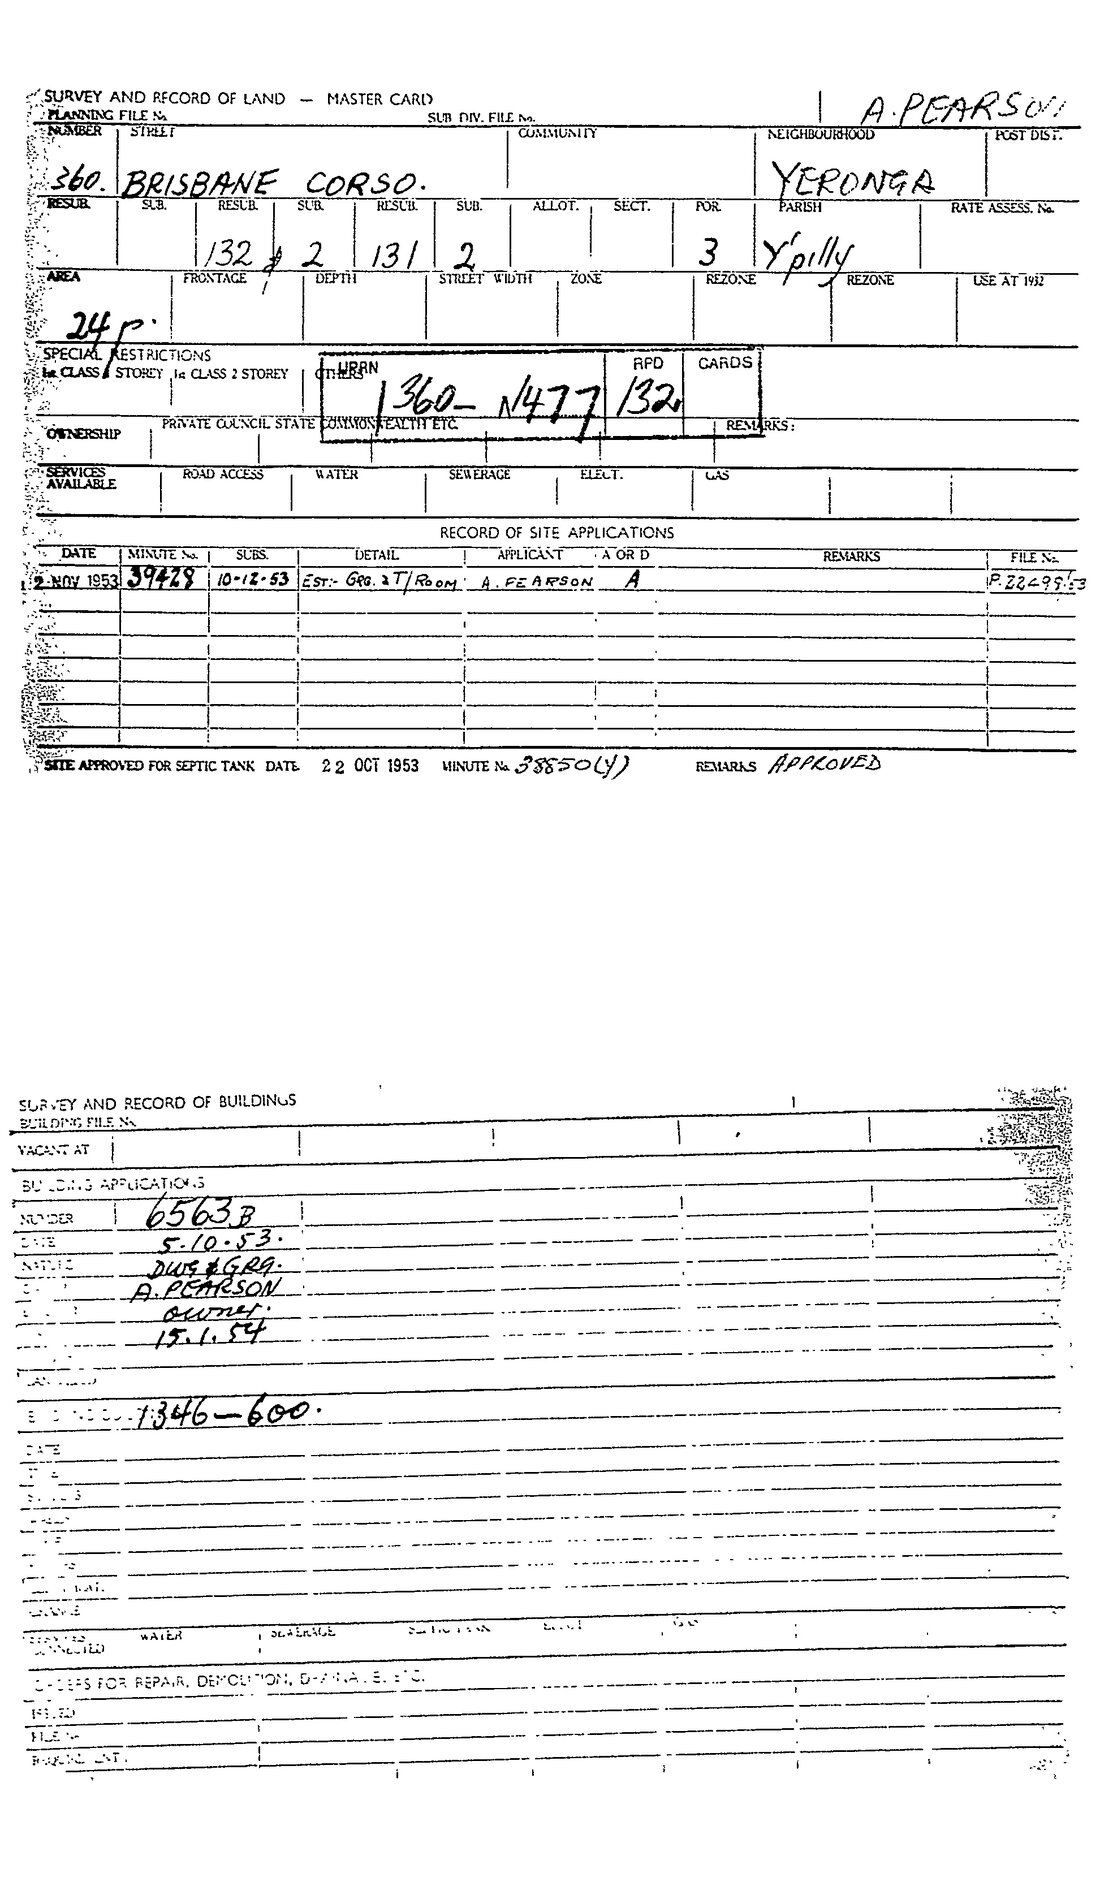 SURVEY AND RECORD OF LAND — MASTER CARD
A. PEARSON
PLANNING FILE No.
SUB DIV. FILE No.
NUMBER STREET COMMUNITY NEIGHBOURHOOD POST DIST.
360. BRISBANE CORSO. YERONGA
RESUB. SUB. RESUB. SUB. RESUB. SUB. ALLOT. SECT. POR. PARISH RATE ASSESS. No.
132 & 2 131 2 3 Y'pilly
AREA FRONTAGE DEPTH STREET WIDTH ZONE REZONE REZONE USE AT 1932
24 p.
SPECIAL RESTRICTIONS
1st CLASS 1 STOREY 1st CLASS 2 STOREY OTHERS
UPRN RPD CARDS
1360- N477 132
OWNERSHIP PRIVATE COUNCIL STATE COMMONWEALTH ETC. REMARKS:
SERVICES AVAILABLE ROAD ACCESS WATER SEWERAGE ELECT. GAS
RECORD OF SITE APPLICATIONS
DATE MINUTE No. SUBS. DETAIL APPLICANT A OR D REMARKS FILE No.
2 NOV 1953 39428 10-12-53 EST:- GRG. 2 T/ROOM A. PEARSON A
SITE APPROVED FOR SEPTIC TANK DATE 22 OCT 1953 MINUTE No. 38850(Y) REMARKS APPROVED
SURVEY AND RECORD OF BUILDINGS
BUILDING FILE No.
VACANT AT
BUILDING APPLICATIONS
NUMBER 6563B
DATE 5.10.53.
NATURE DWG & GRG.
A. PEARSON
owner.
15.1.54
1346—600.
DATE
CHANGE
CONNECTED WATER SEWERAGE SEPTIC TANK ELECT. GAS
ORDERS FOR REPAIR, DEMOLITION, DRAINAGE. ETC.
ISSUED
FILE No
REQUIREMENTS